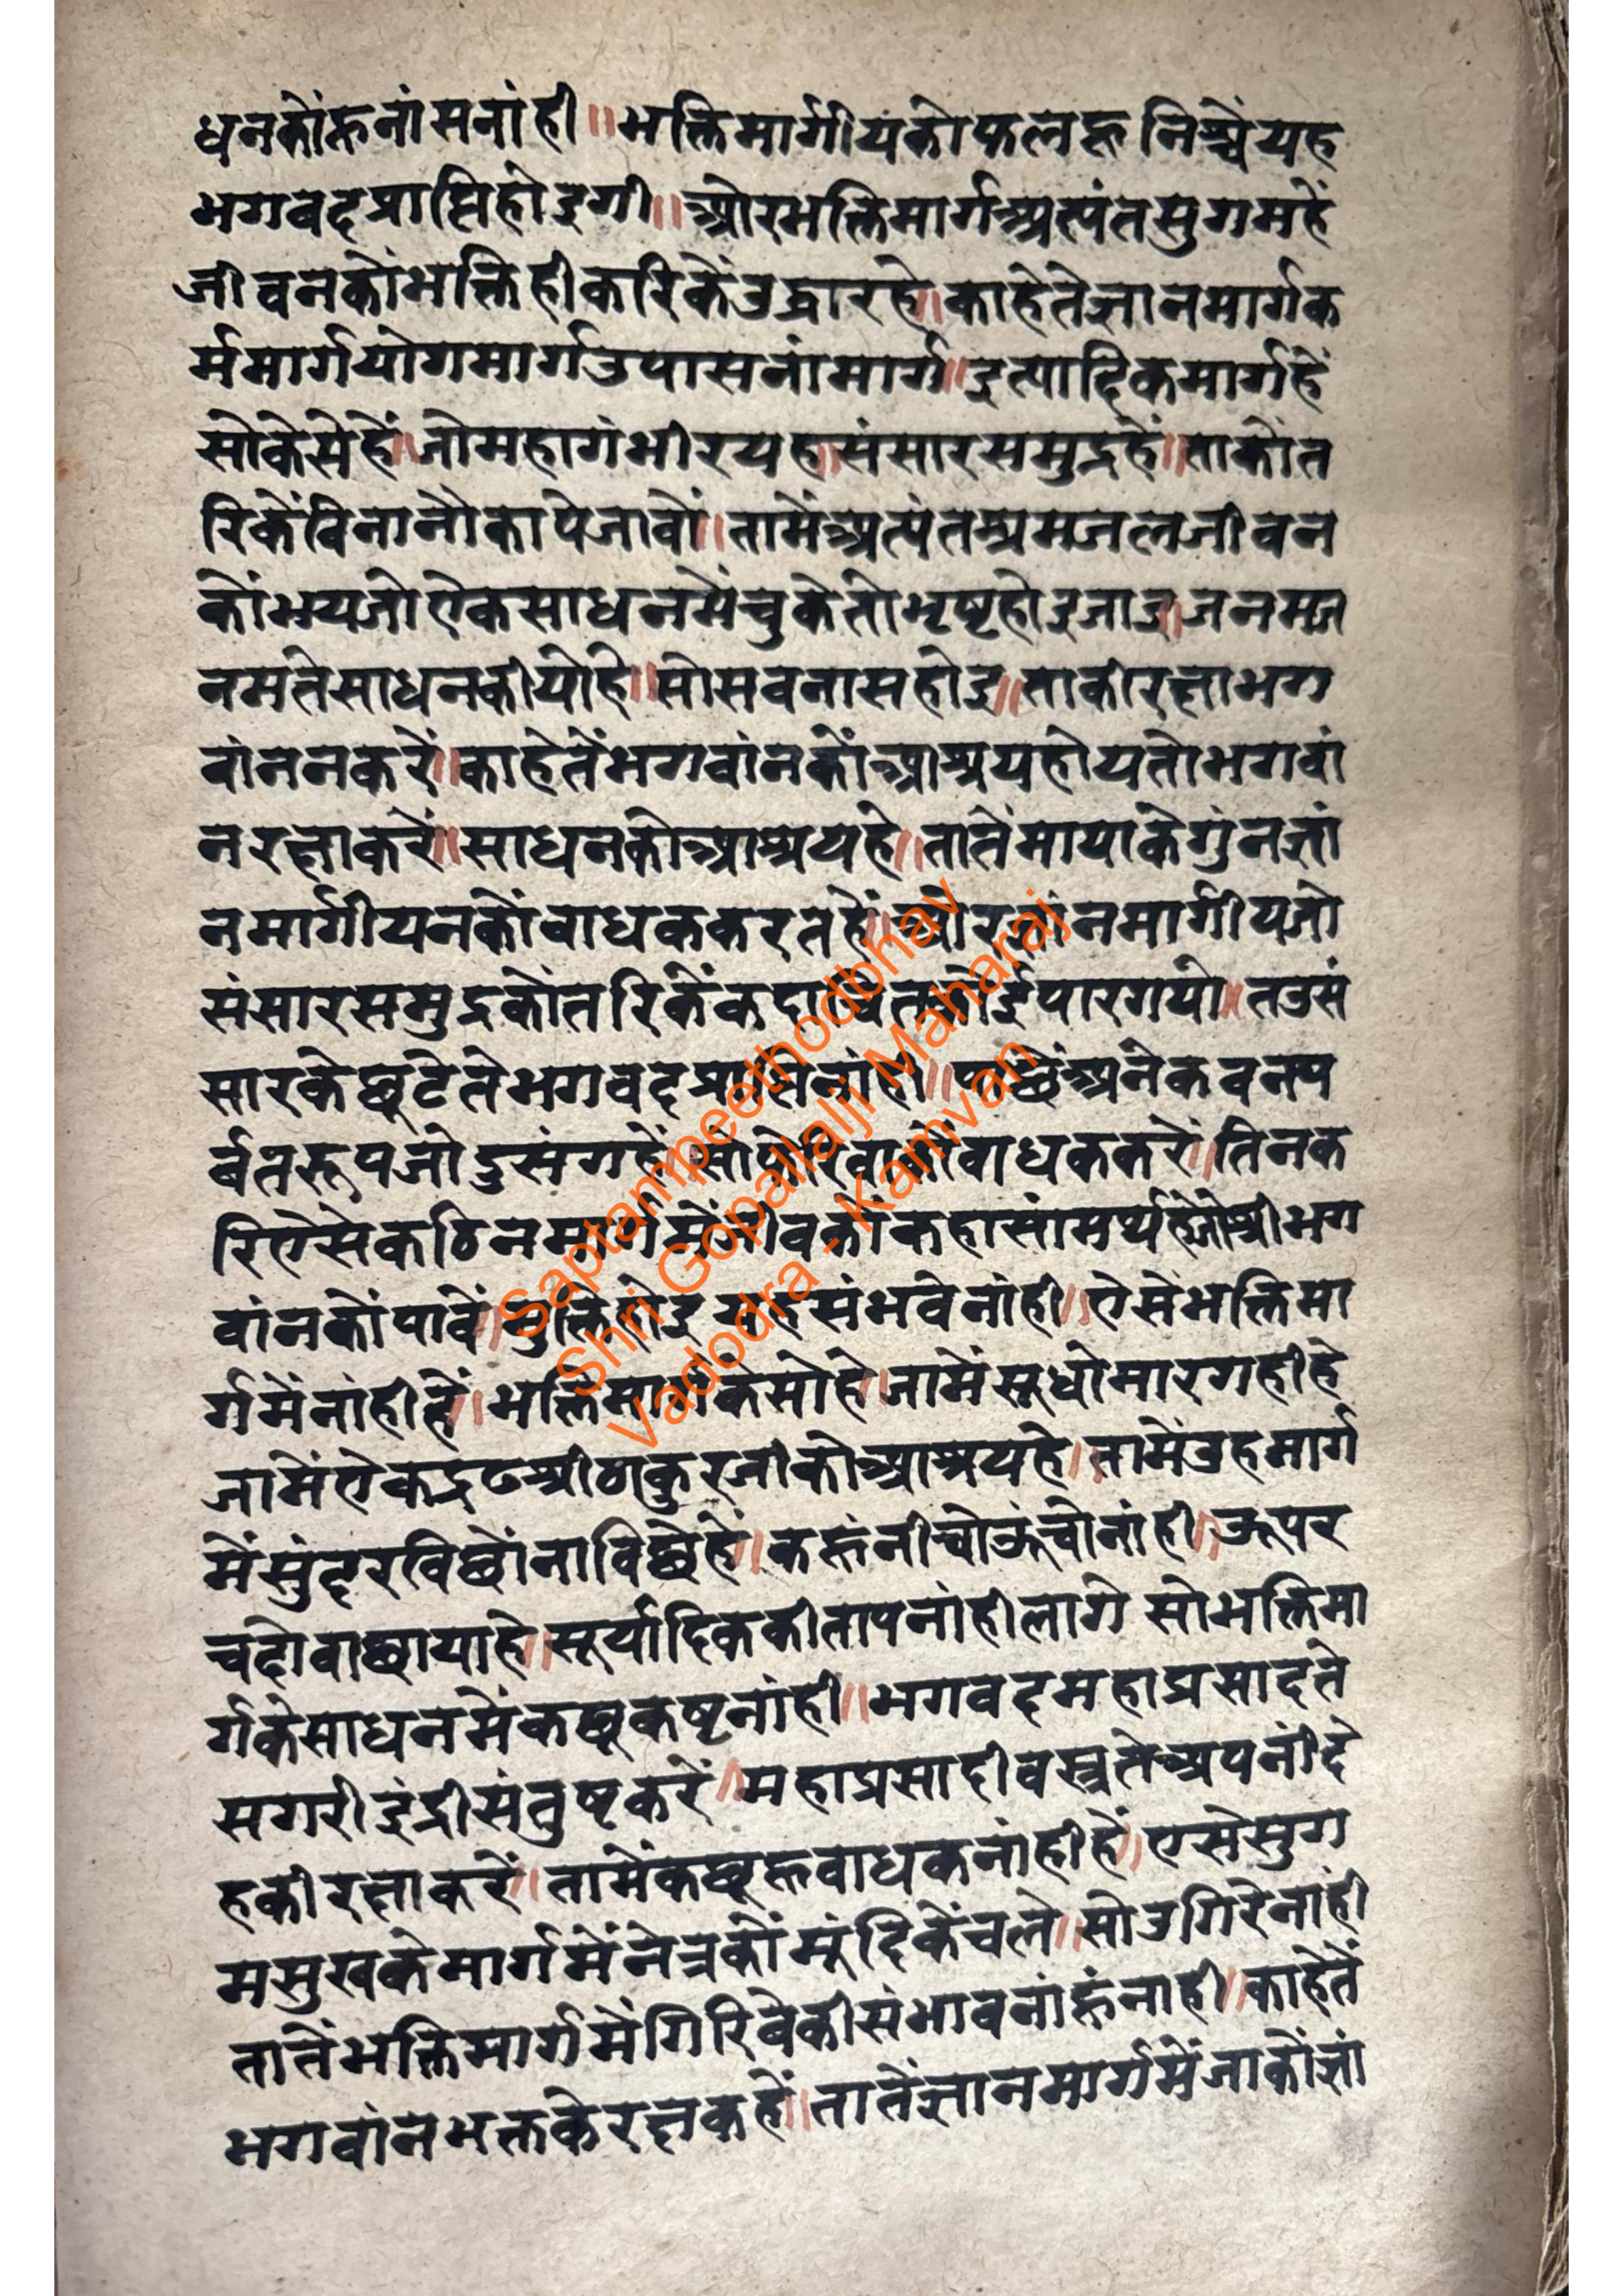 धनकोंहूनांसनांही ॥ भक्तिमार्गीयंकोफलहूनिश्चेंयह
भगवदप्राप्तिहोइगी ॥ ओरभक्तिमार्गअत्यंतसुगमहें
जीवनकोंभक्तिहीकरिकेंउद्धारहे ॥ काहेतेज्ञानमार्गक
र्ममार्गयोगमार्गउपासनांमार्ग ॥ इत्यादिकमार्गहें
सोकेसेहें ॥ जोमहागंभीरयह ॥ संसारसमुद्रहें ॥ ताकोंत
रिकेंविनानौकापेजावों ॥ तामेंअत्यंतश्रमजलजीवन
कोंभयजोऐकसाधनमेंचुकेतोभृष्टहोइजाउ ॥ जनमज
नमतेसाधनकीयोहे ॥ सोसवनासहोइ ॥ ताकीरक्षाभग
वांननकरें ॥ काहेतेंभगवांनकोंआश्रयहोयतोभगवां
नरक्षाकरें ॥ साधनकोआश्रयहे ॥ तातेंमायाकेगुंनज्ञां
नमार्गीयनकोंवाधककरतहें ॥ ओरज्ञांनमार्गीयजो
संसारसमुद्रकोंतरिकेंकदाचितकोईपारगयो ॥ तउसं
सारकेछूटेतेभगवदप्राप्तिनांही ॥ पाछेंअनेकवनप
र्वतरूपजोदुसंगहें ॥ सोफेरिवाकोंवाधककरें ॥ तिनक
रिऐसेकठिनमार्गमेंजीवकोंकहासांमर्थ्यहेजोश्रीभग
वांनकोंपावें ॥ मुक्तिहोइयहसंभवेनांही ॥ ऐसेंभक्तिमा
र्गमेंनांहीहें ॥ भक्तिमार्गकेसोहे ॥ जामेंसूधोमारगहीहे
जामेंऐकद्रढश्रीठाकुरजीकोआश्रयहे ॥ तामेंउहमार्ग
मेंसुंदरविछोंनाविछेहें ॥ कहूंनीचोऊंचोनांही ॥ ऊपर
चदोवाछायाहे ॥ सूर्यादिककीतापनांहीलागे सोभक्तिमा
र्गकेसाधनमेंकछूकष्टनांही ॥ भगवदमहाप्रसादते
सगरीइंद्रीसंतुष्टकरें ॥ महाप्रसादीवस्त्रतेअपनींदे
हकीरक्षाकरें ॥ तामेंकछूहूवाधकनांहीहें ॥ ऐसेसुग
मसुखकेमार्गमेंनेत्रकोंमूंदिकेंचले ॥ सोउगिरेनांही
तातेंभक्तिमार्गमेंगिरिवेकीसंभावनांहूंनाही ॥ काहेतें
भगवांनभक्तकेरक्षकहें ॥ तातेंज्ञानमार्गमेंजाकोंज्ञां
Saptampeethodbhav
Shri Gopallalji Maharaj
Vadodra - Kamvan